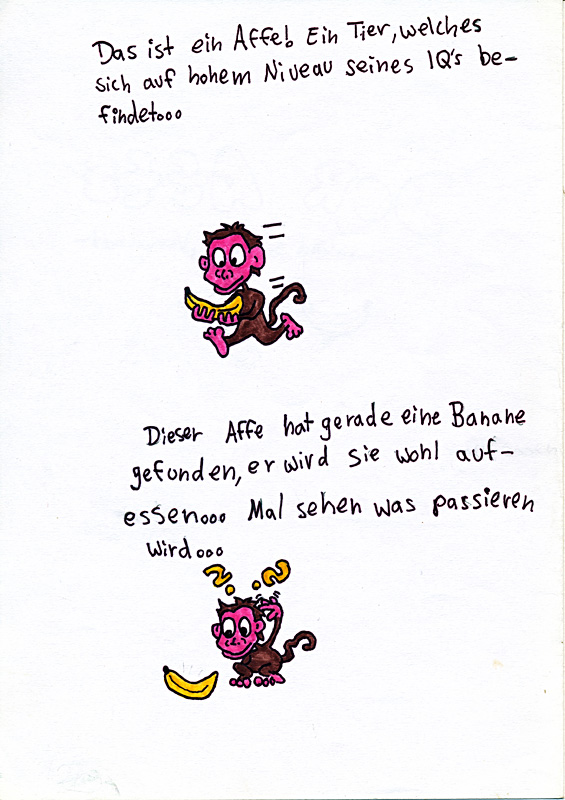 Das ist ein Affe! Ein Tier, welches
sich auf hohem Niveau seines IQ's be-
findet...
Dieser Affe hat gerade eine Banane
gefunden, er wird sie wohl auf-
essen... Mal sehen was passieren
wird...
? ?